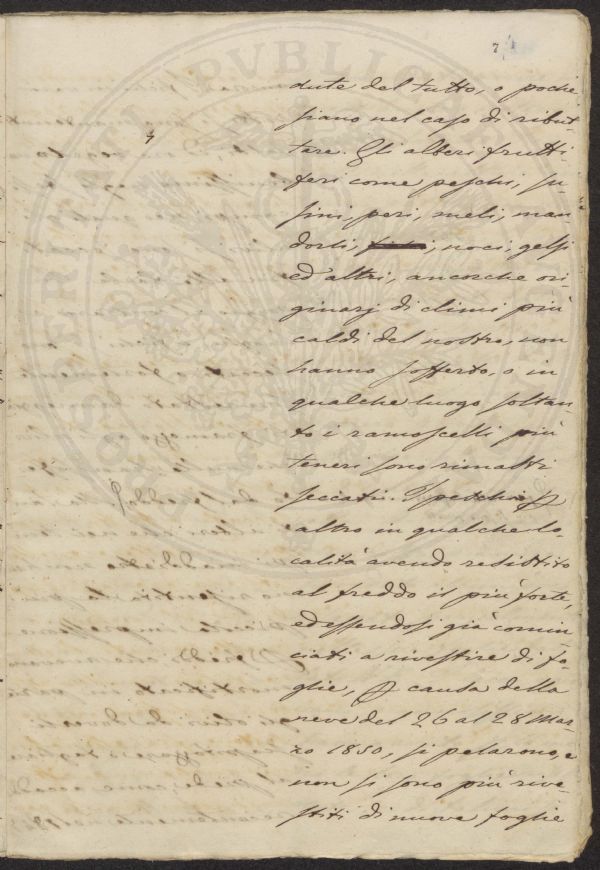 7
dute del tutto, o poche
siano nel caso di ribut-
tare. Gli alberi frutti-
feri come peschi, su-
sini, peri, meli, man
dorli, noci, gelsi
ed altri, ancorche ori-
ginarj di climi più
caldi del nostro, non
hanno sofferto, o in
qualche luogo soltan-
to i ramoscelli più
teneri sono rimasti
seccati. I peschi
altro in qualche lo-
calità avendo resistito
al freddo il più forte,
ed essendosi già comin-
ciati a rivestire di fo-
glie, causa della
neve del 26 al 28 Mar-
zo 1850, si pelarono, e
non si sono più rive-
stiti di nuove foglie
PROSPERITATI PUBLICAE